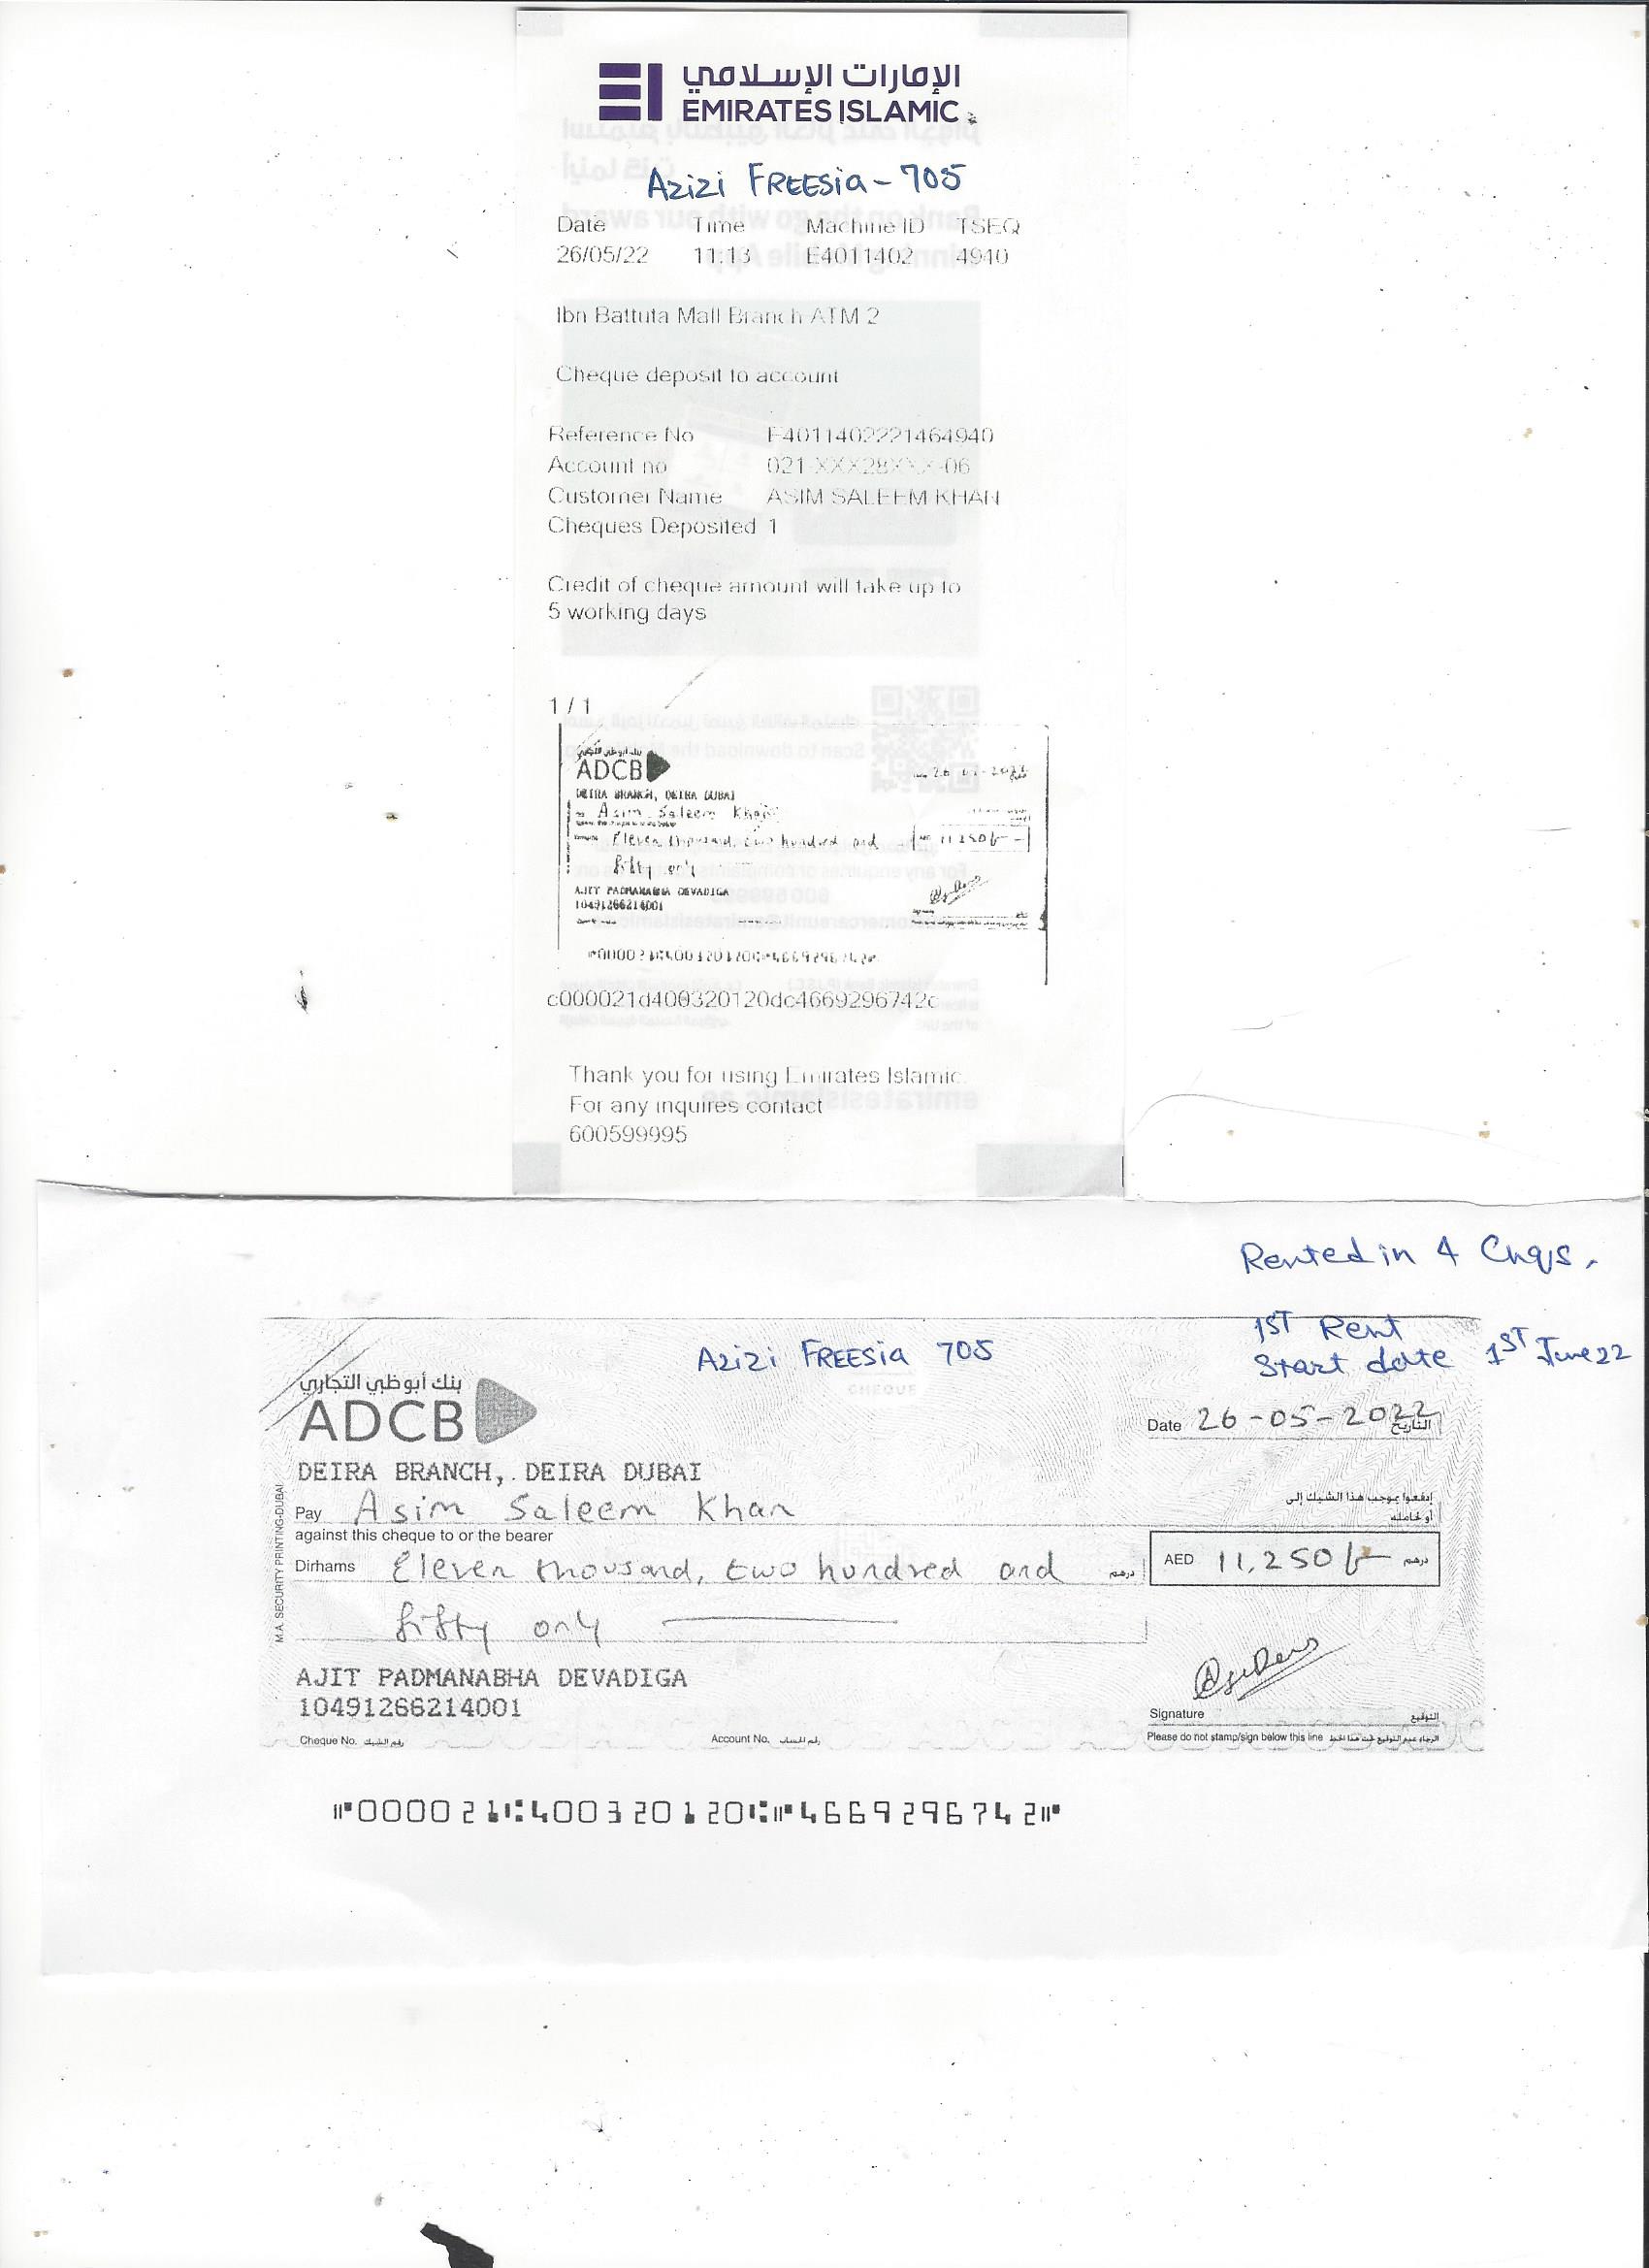 الإمارات الإسلامي
EMIRATES ISLAMIC
Azizi FREESia - 705
Date Time Machine ID TSEQ
26/05/22 11:13 E4011402 4940
Ibn Battuta Mall Branch ATM 2
Cheque deposit to account
Reference No E4011402221464940
Account no 021-XXX28XXX-06
Customer Name ASIM SALEEM KHAN
Cheques Deposited 1
Credit of cheque amount will take up to
5 working days
1 / 1
بنك أبوظبي التجاري
ADCB
26-05-2022
DEIRA BRANCH, DEIRA DUBAI
Asim Saleem Khan
Eleven thousand, two hundred and 11,250/-
fifty only
AJIT PADMANABHA DEVADIGA
10491266214001
c000021d400320120dc4669296742c
Thank you for using Emirates Islamic.
For any inquires contact
600599995
Rented in 4 Chqs.
1ST Rent
Start date 1ST June 22
Azizi FREESia 705
CHEQUE
بنك أبوظبي التجاري
ADCB
Date 26-05-2022 التاريخ
DEIRA BRANCH, DEIRA DUBAI
إدفعوا بموجب هذا الشيك إلى
Pay Asim Saleem Khan أو لحامله
against this cheque to or the bearer
Dirhams Eleven thousand, two hundred and درهم
AED 11,250/- درهم
fifty only
M.A. SECURITY PRINTING-DUBAI
AJIT PADMANABHA DEVADIGA
10491266214001
Signature التوقيع
Cheque No. رقم الشيك Account No. رقم الحساب Please do not stamp/sign below this line الرجاء عدم التوقيع تحت هذا الخط
⑈000021⑆400320120⑆⑈4669296742⑈